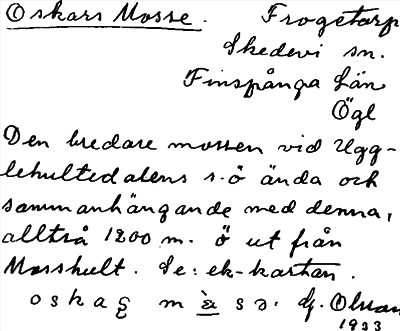 Oskars Mosse. Frogetorp
Skedevi sn.
Finspånga Län
Ögl
Den bredare mossen vid Ugg-
lehultedalens s.ö ända och
sammanhängande med denna,
alltså 1200 m. ö ut från
Mosshult. Se: ek-kartan.
oska m sɔ. Hj. Olsson
1933